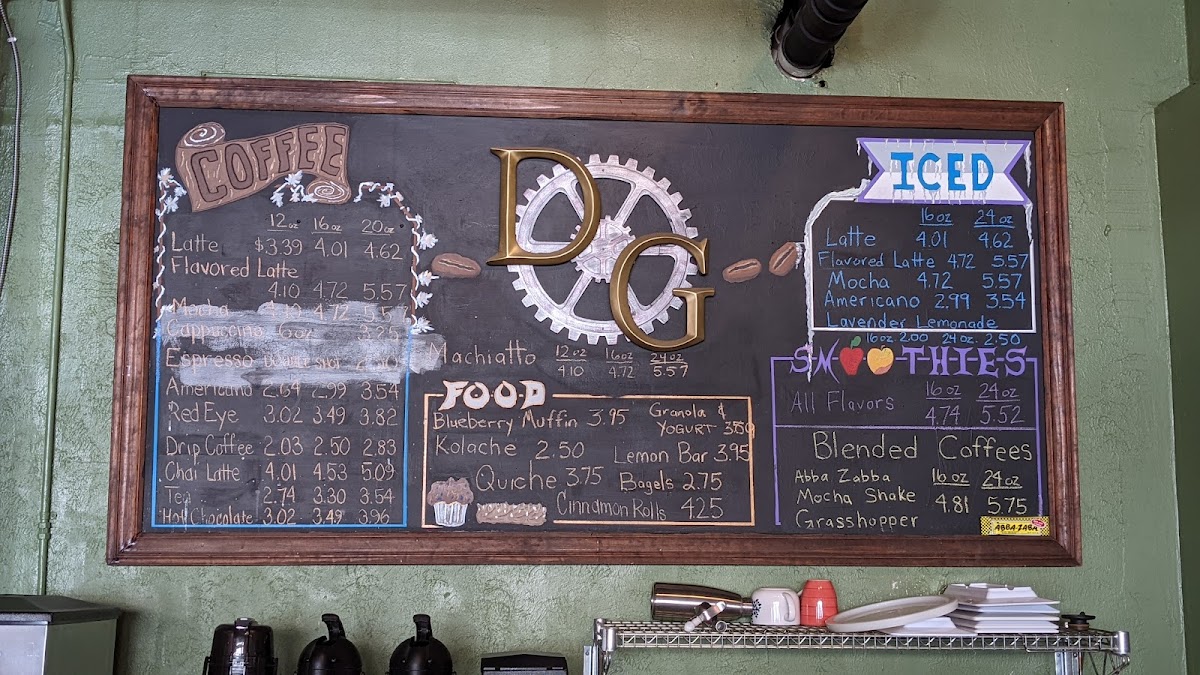 COFFEE
12 oz 16 oz 20 oz
Latte $3.39 4.01 4.62
Flavored Latte
4.10 4.72 5.57
Mocha 4.72
Cappuccino 6oz 3.25
Espresso
Americano 2.64 2.99 3.54
Red Eye 3.02 3.49 3.82
Drip Coffee 2.03 2.50 2.83
Chai Latte 4.01 4.53 5.09
Tea 2.74 3.30 3.54
Hot Chocolate 3.02 3.49 3.96
DG
Machiatto 12 oz 16 oz 24 oz
4.10 4.72 5.57
FOOD
Blueberry Muffin 3.95
Granola &
YOGURT 3.50
Kolache 2.50
Lemon Bar 3.95
Quiche 3.75
Bagels 2.75
Cinnamon Rolls 4.25
ICED
16 oz 24 oz
Latte 4.01 4.62
Flavored Latte 4.72 5.57
Mocha 4.72 5.57
Americano 2.99 3.54
Lavender Lemonade
16oz 2.00 24oz. 2.50
SMOOTHIES
16 oz 24 oz
All Flavors 4.74 5.52
Blended Coffees
Abba Zabba 16 oz 24 oz
Mocha Shake 4.81 5.75
Grasshopper
ABBA ZABA